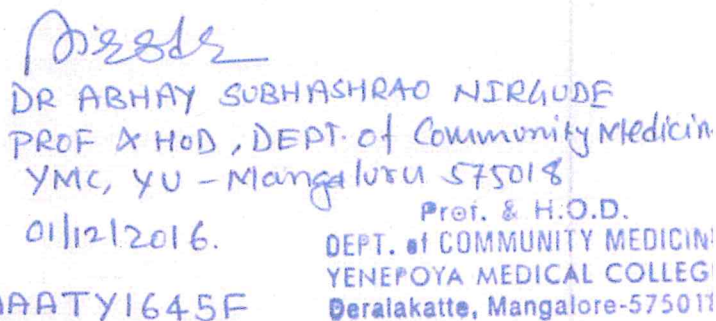 DR ABHAY SUBHASHRAO NIRGUDE
PROF & HOD, DEPT. of Community Medicin
YMC, YU - Mangaluru 575018
01/12/2016.
Prof. & H.O.D.
DEPT. of COMMUNITY MEDICINE
YENEPOYA MEDICAL COLLEGE
Deralakatte, Mangalore-575018
AAATY1645F